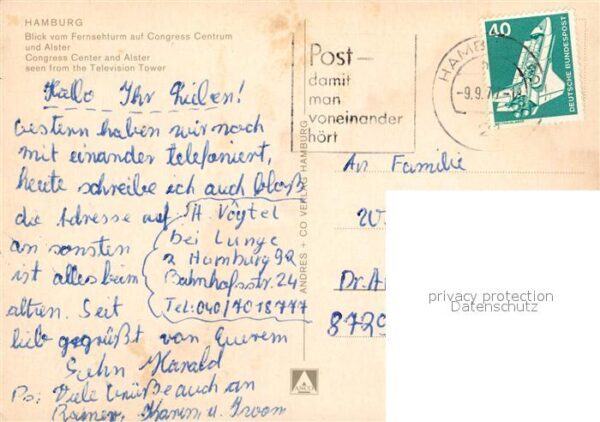 HAMBURG
Blick vom Fernsehturm auf Congress Centrum
und Alster
Congress Center and Alster
seen from the Television Tower
Hallo Ihr Lieben!
Gestern haben wir noch
mit einander telefoniert,
heute schreibe ich auch bloß
die Adresse auf H. Voytel
bei Lunge
2 Hamburg 92
Bahnhofsstr. 24
Tel: 040/7018777
an sonsten
ist alles beim
alten. Seit
lieb gegrüßt von Eurem
Sohn Harald
Ps: Viele Grüße auch an
Rainer, Karin u.
ANDRES + CO VERLAG HAMBURG
ANCO
Post-
damit
man
voneinander
hört
HAMB
-9.9.7
40
DEUTSCHE BUNDESPOST
An Familie
W.
Dr. A
8729
privacy protection
Datenschutz